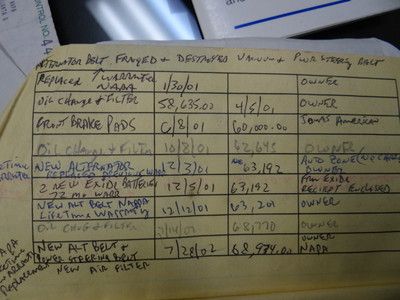 ALTERNATOR BELT FRAYED & DESTROYED VACUUM & PWR STEERING BELT
REPLACED WARRANTED NAPA 1/30/01 OWNER
OIL CHANGE & FILTER 58,635.00 4/5/01 OWNER
FRONT BRAKE PADS 6/8/01 60,000.00 AMERICAN
OIL CHANGE & FILTER 10/8/01 62,645 OWNER
NEW ALTERNATOR 12/3/01 63,192 AUTO ZONE (NO CHARGE)
OWNER
2 NEW EXIDE BATTERIES 12/5/01 63,192 FROM EXIDE
72 MO WARR RECIEPT ENCLOSED
NEW ALT BELT NAPA 12/12/01 63,201 OWNER
LIFETIME WARRANTY
OIL CHNG & FILTER 68,770 OWNER
NEW ALT BELT & 7/28/02 68,974.00 OWNER
POWER STEERING BELT NAPA
NEW AIR FILTER
NAPA
LIFETIME
WARRANTY
REPLACEMENT